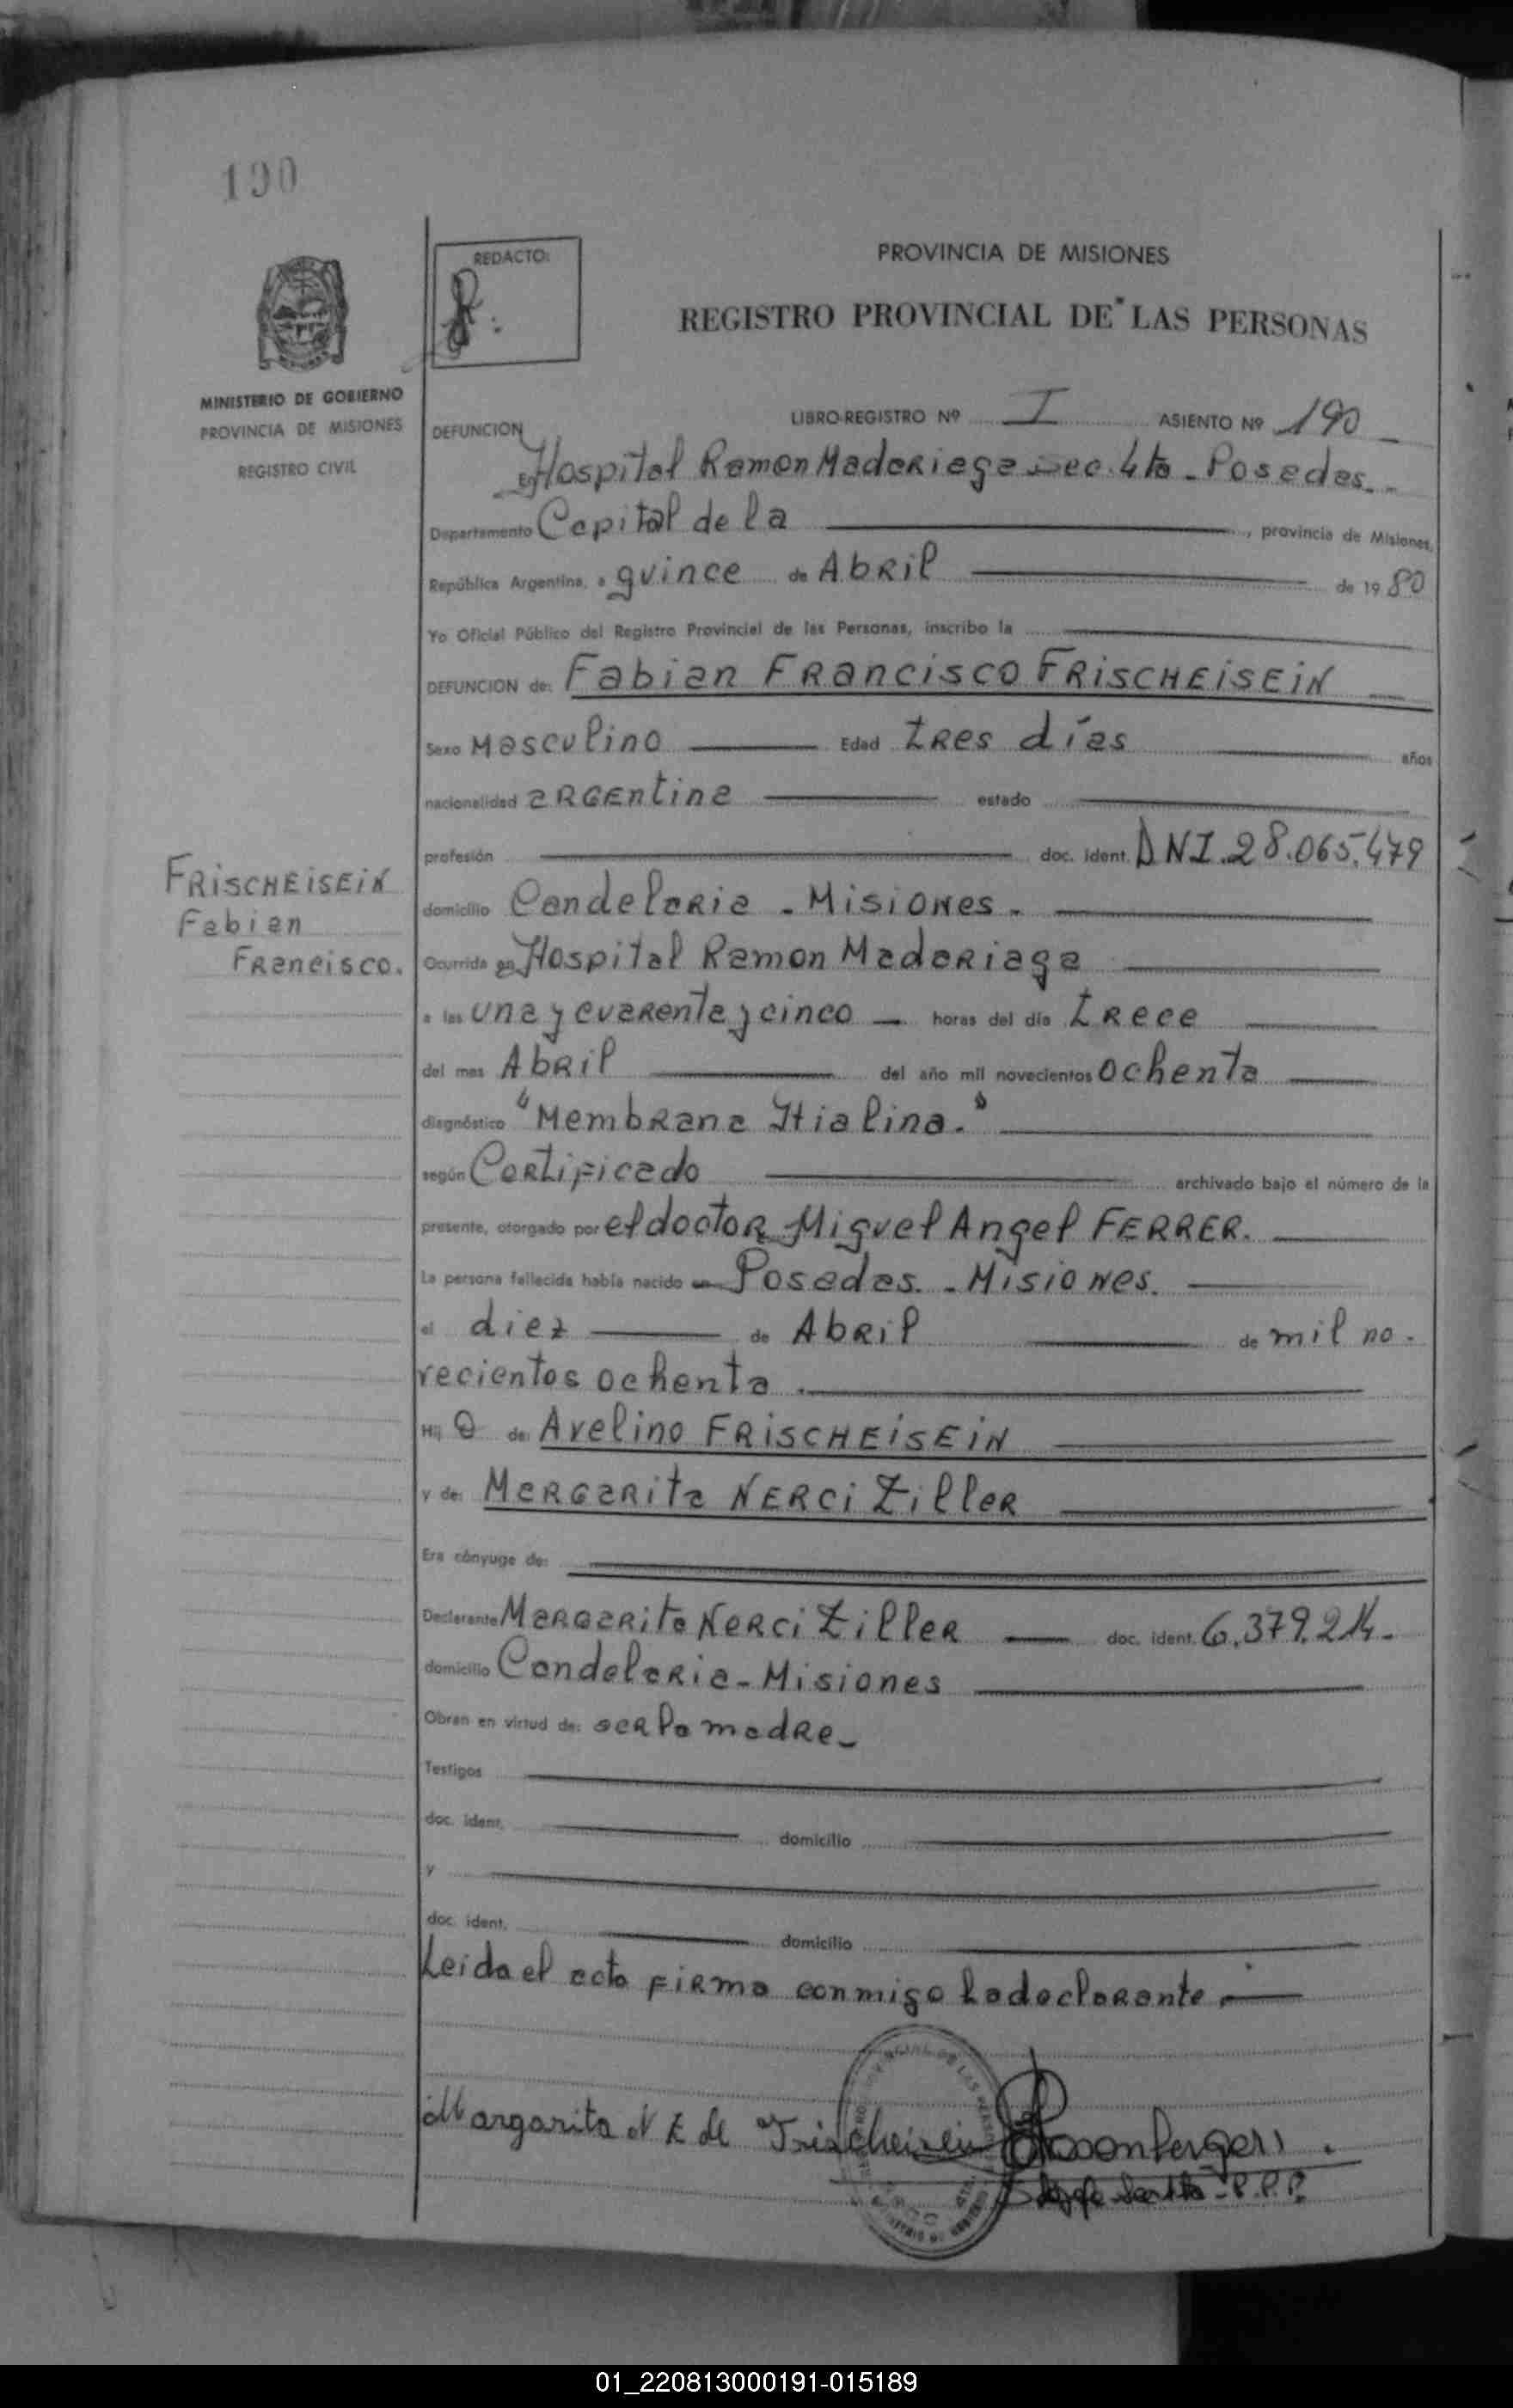 190
REDACTO:
PROVINCIA DE MISIONES
REGISTRO PROVINCIAL DE LAS PERSONAS
MINISTERIO DE GOBIERNO
PROVINCIA DE MISIONES
REGISTRO CIVIL
LIBRO-REGISTRO Nº I ASIENTO Nº 190
DEFUNCION
En Hospital Ramon Madariaga Sec. 4ta - Posadas.
Departamento Capital de la , provincia de Misiones,
República Argentina, a quince de Abril de 1980
Yo Oficial Público del Registro Provincial de las Personas, inscribo la
DEFUNCION de: Fabian FRancisco FRiSCHEiSEiN
Sexo Masculino Edad tres días años
nacionalidad argentina estado
profesión doc. ident. DNI. 28.065.479
FRiSCHEiSEiN
Fabian
Francisco.
domicilio Candelaria - Misiones.
Ocurrida en Hospital Ramon Madariaga
a las una y cuarenta y cinco horas del día trece
del mes Abril del año mil novecientos ochenta
diagnóstico "Membrana Hialina."
según Certificado archivado bajo el número de la
presente, otorgado por el doctor Miguel Angel FERRER.
La persona fallecida había nacido en Posadas. - Misiones.
el diez de Abril de mil no-
vecientos ochenta.
Hij o de: Avelino FRiSCHEiSEiN
y de: Margarita NERCi Ziller
Era cónyuge de:
Declarante Margarita Nerci Ziller doc. ident. 6.379.214.
domicilio Candelaria - Misiones
Obran en virtud de: ser la madre
Testigos
doc. ident. domicilio
y
doc. ident. domicilio
Leida el acta firma conmigo la declarante.
Margarita N Z de Frischeisein
01_220813000191-015189